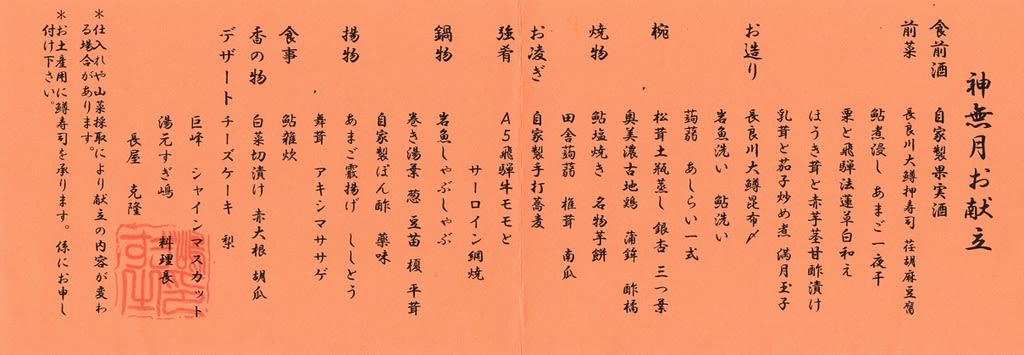 神無月お献立
食前酒 自家製果実酒
前菜 長良川大鱒押寿司 荏胡麻豆腐
鮎煮浸し あまご一夜干
栗と飛騨法蓮草白和え
ほうき茸と赤芋茎甘酢漬け
乳茸と茄子炒め煮 満月玉子
お造り 長良川大鱒昆布〆
岩魚洗い 鮎洗い
蒟蒻 あしらい一式
椀 松茸土瓶蒸し 銀杏 三つ葉
奥美濃古地鶏 蒲鉾 酢橘
焼物 鮎塩焼き 名物芋餅
田舎蒟蒻 椎茸 南瓜
お凌ぎ 自家製手打蕎麦
強肴 A5飛騨牛モモと
サーロイン網焼
鍋物 岩魚しゃぶしゃぶ
巻き湯葉 葱 豆苗 榎 平茸
自家製ぽん酢 薬味
揚物 あまご霰揚げ ししとう
舞茸 アキシマササゲ
食事 鮎雑炊
香の物 白菜切漬け 赤大根 胡瓜
デザート チーズケーキ 梨
巨峰 シャインマスカット
湯元すぎ嶋 料理長
長屋 克隆
＊仕入れや山菜採取により献立の内容が変わ
る場合があります。
＊お土産用に鱒寿司を承ります。係にお申し
付け下さい。